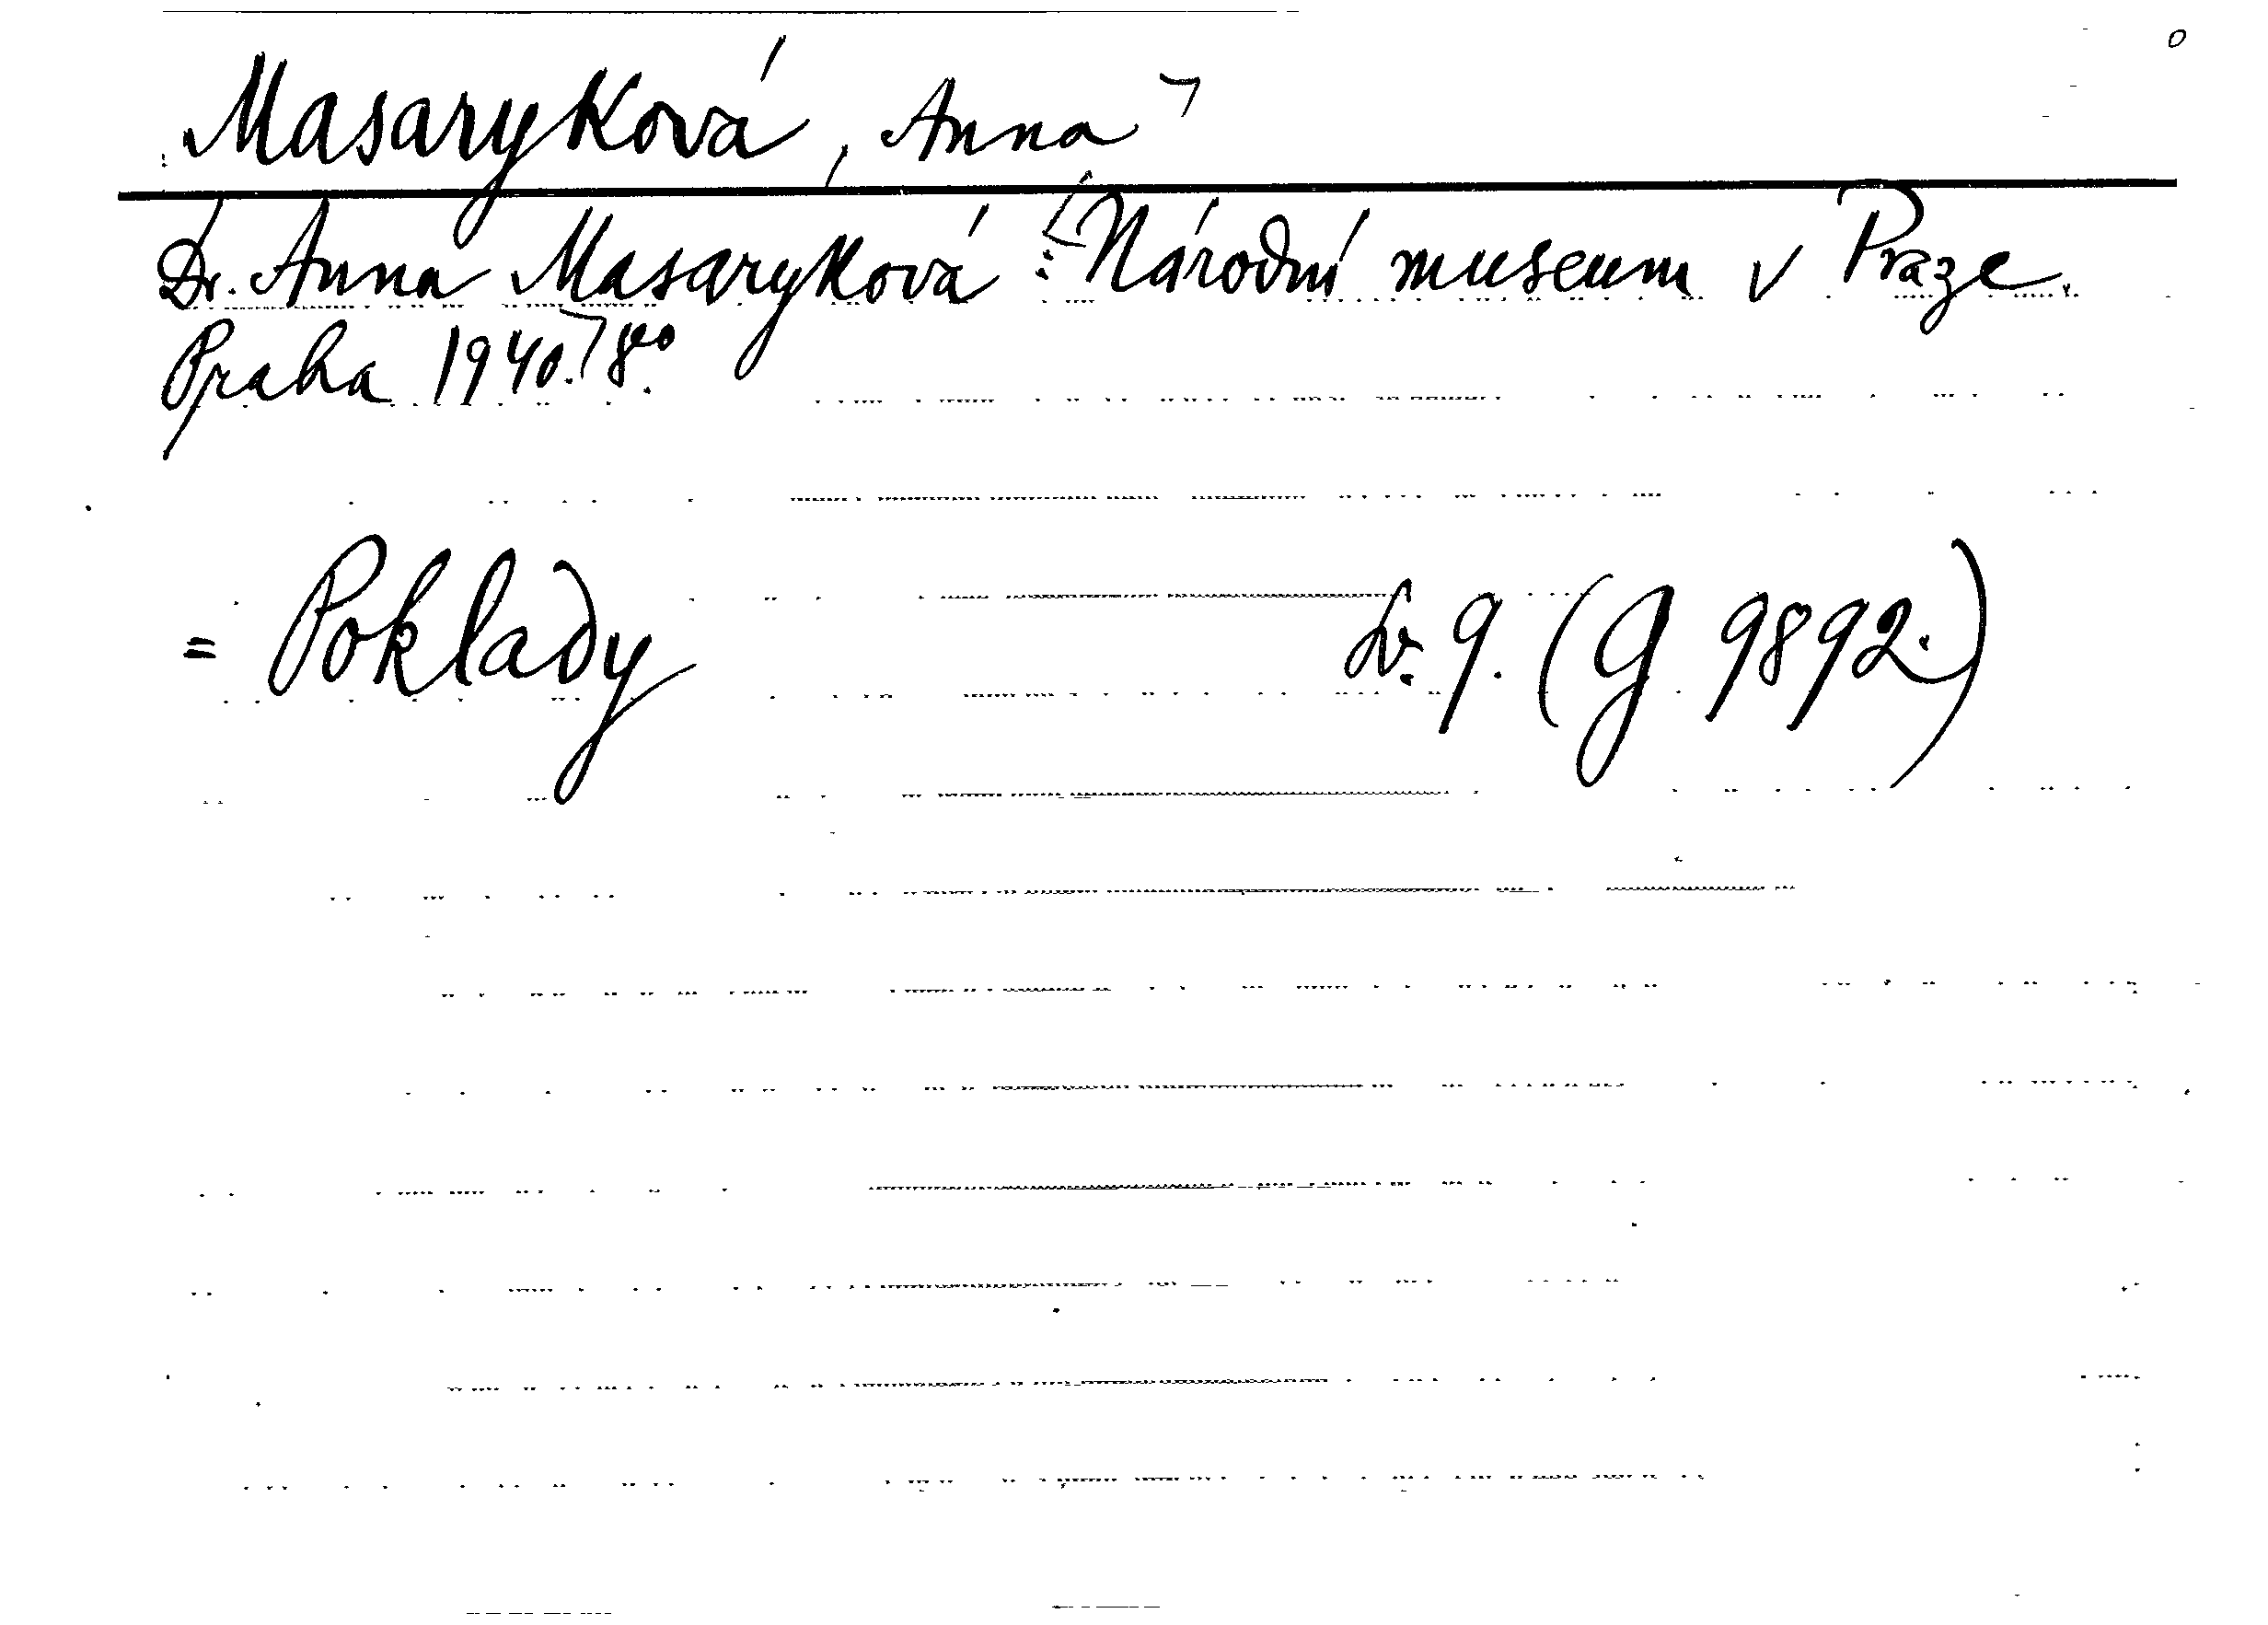 Masaryková, Anna
Dr. Anna Masaryková: Národní museum v Praze.
Praha 1940. 8°.
= Poklady Sv. 9. (G 9892.)